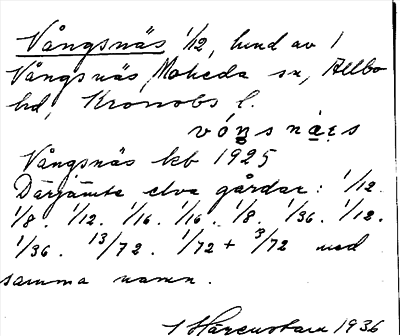 Vångsnäs 1/12, hmd av 1
Vångsnäs, Moheda sn, Allbo
hd, Kronobs l.
Vångsnäs kb 1925
Därjämte elva gårdar: 1/12.
1/8. 1/12. 1/16. 1/16. 1/8. 1/36. 1/12.
1/36. 13/72. 1/72 + 3/72 med
samma namn.
1936